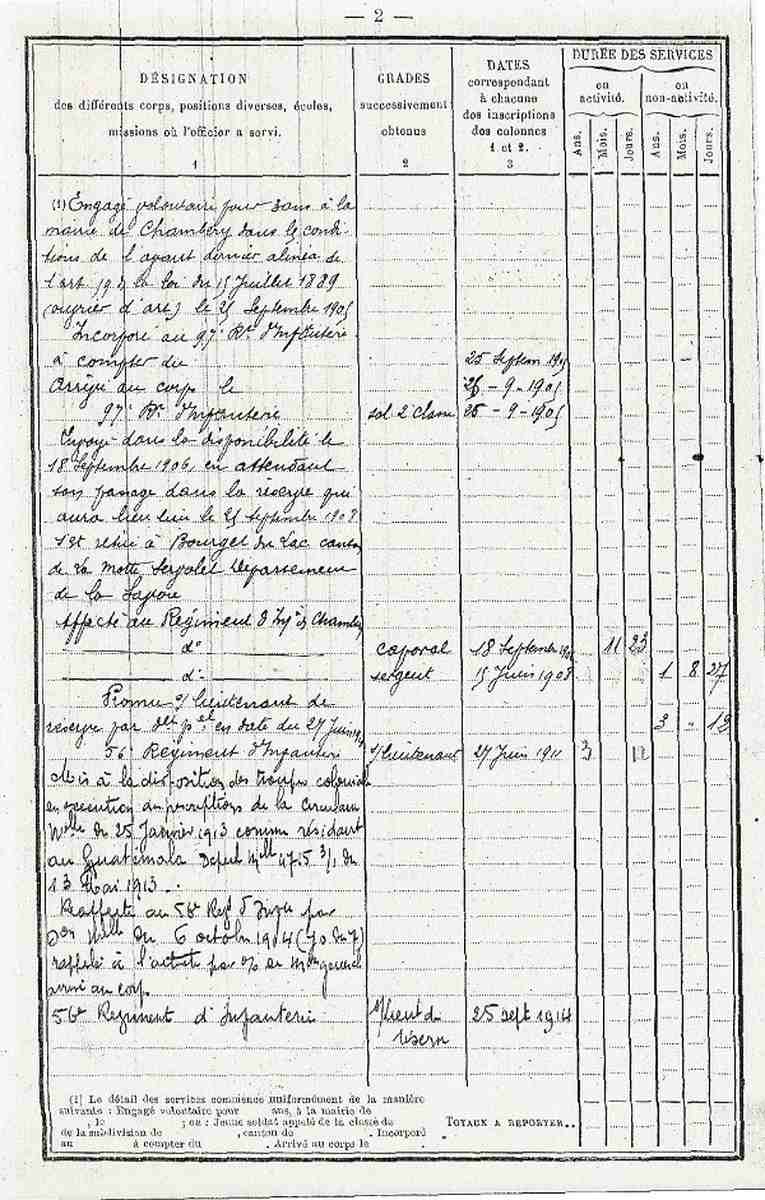 — 2 —
DÉSIGNATION
des différents corps, positions diverses, écoles,
missions où l'officier a servi.
1
GRADES
successivement
obtenus
2
DATES
correspondant
à chacune
des inscriptions
des colonnes
1 et 2.
3
DURÉE DES SERVICES
en
activité.
en
non-activité.
Ans.
Mois.
Jours.
Ans.
Mois.
Jours.
(1) Engagé volontaire pour 3 ans à la
mairie de Chambéry dans les condi-
tions de l'avant dernier alinéa de
l'art la loi du 15 Juillet 1889
(ouvrier d'art) le 25 Septembre 1905
Incorporé au 97e Rt d'Infanterie
à compter du 25 Septem 1905
Arrivé au corps le 26 - 9 - 1905
97e Rt d'Infanterie sol 2e Classe 25 - 9 - 1905
Envoyé dans la disponibilité le
18 Septembre 1906, en attendant
son passage dans la réserve qui
aura lieu le 25 septembre 1908
S'est retiré à Bourget du Lac canton
de La Motte Servolet Département
de la Savoie
Affecté au Régiment d'Infie de Chambéry
do caporal 18 Septembre 1906 11 23
do sergent 15 Juin 1908 1 8 27
Promu s/lieutenant de
réserve par en date du 27 Juin 1911 3 " 12
56e Régiment d'Infanterie s/lieutenant 27 Juin 1911 3 12
Mis à la disposition des troupes coloniales
en exécution des prescriptions de la Circulaire
Mlle du 25 Janvier 1913 comme résidant
au Guatemala Dépêche Mlle 4715 3/1 du
13 Mai 1913.
Réaffecté au 56e Regt d'Infie par
Don Mlle du 6 octobre 1914
rappelé à l'activité par de générale
arrivé au corps
56e Regiment d'Infanterie s/lieut de 25 sept 1914
réserve
(1) Le détail des services commence uniformément de la manière
suivante : Engagé volontaire pour ans, à la mairie de
, le ; ou : Jeune soldat appelé de la classe de
de la subdivision de , canton de . Incorporé
au à compter du . Arrivé au corps le .
TOTAUX A REPORTER..